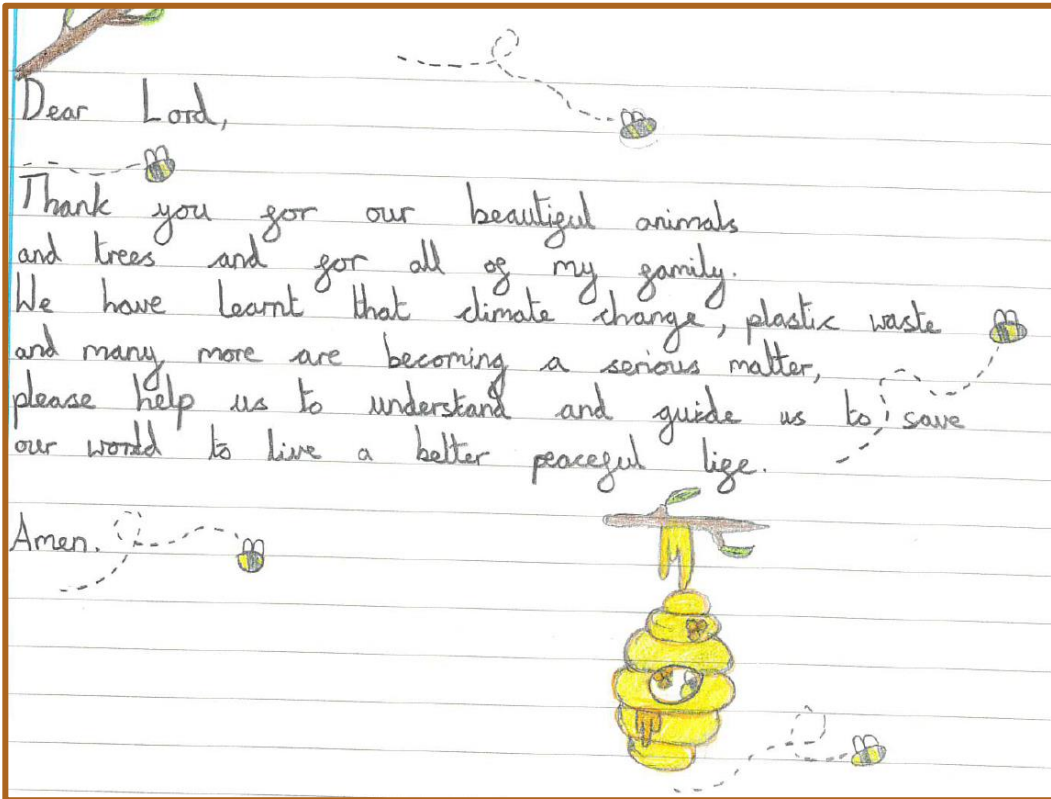 Dear Lord,
Thank you for our beautiful animals
and trees and for all of my family.
We have learnt that climate change, plastic waste
and many more are becoming a serious matter,
please help us to understand and guide us to save
our world to live a better peaceful life.
Amen.